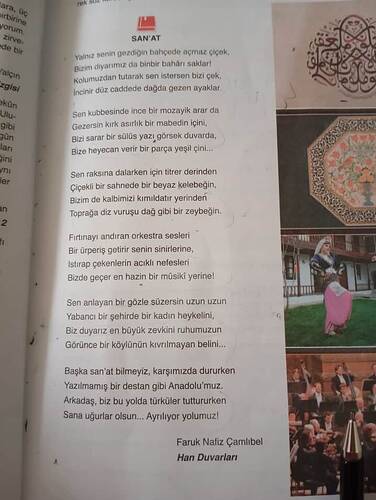 SAN'AT
Yalnız senin gezdiğin bahçede açmaz çiçek,
Bizim diyarımız da binbir baharı saklar!
Kolumuzdan tutarak sen istersen bizi çek,
İncinir düz caddede dağda gezen ayaklar.
Sen kubbesinde ince bir mozayik arar da
Gezersin kırk asırlık bir mabedin içini,
Bizi sarar bir sülüs yazı görsek duvarda,
Bize heyecan verir bir parça yeşil çini...
Sen raksına dalarken için titrer derinden
Çiçekli bir sahnede bir beyaz kelebeğin,
Bizim de kalbimizi kımıldatır yerinden
Toprağa diz vuruşu dağ gibi bir zeybeğin.
Fırtınayı andıran orkestra sesleri
Bir ürperiş getirir senin sinirlerine,
Istırap çekenlerin acıklı nefesleri
Bizde geçer en hazin bir mûsikî yerine!
Sen anlayan bir gözle süzersin uzun uzun
Yabancı bir şehirde bir kadın heykelini,
Biz duyarız en büyük zevkini ruhumuzun
Görünce bir köylünün kıvrılmayan belini...
Başka san'at bilmeyiz, karşımızda dururken
Yazılmamış bir destan gibi Anadolu'muz.
Arkadaş, biz bu yolda türküler tuttururken
Sana uğurlar olsun... Ayrılıyor yolumuz!
Faruk Nafiz Çamlıbel
Han Duvarları